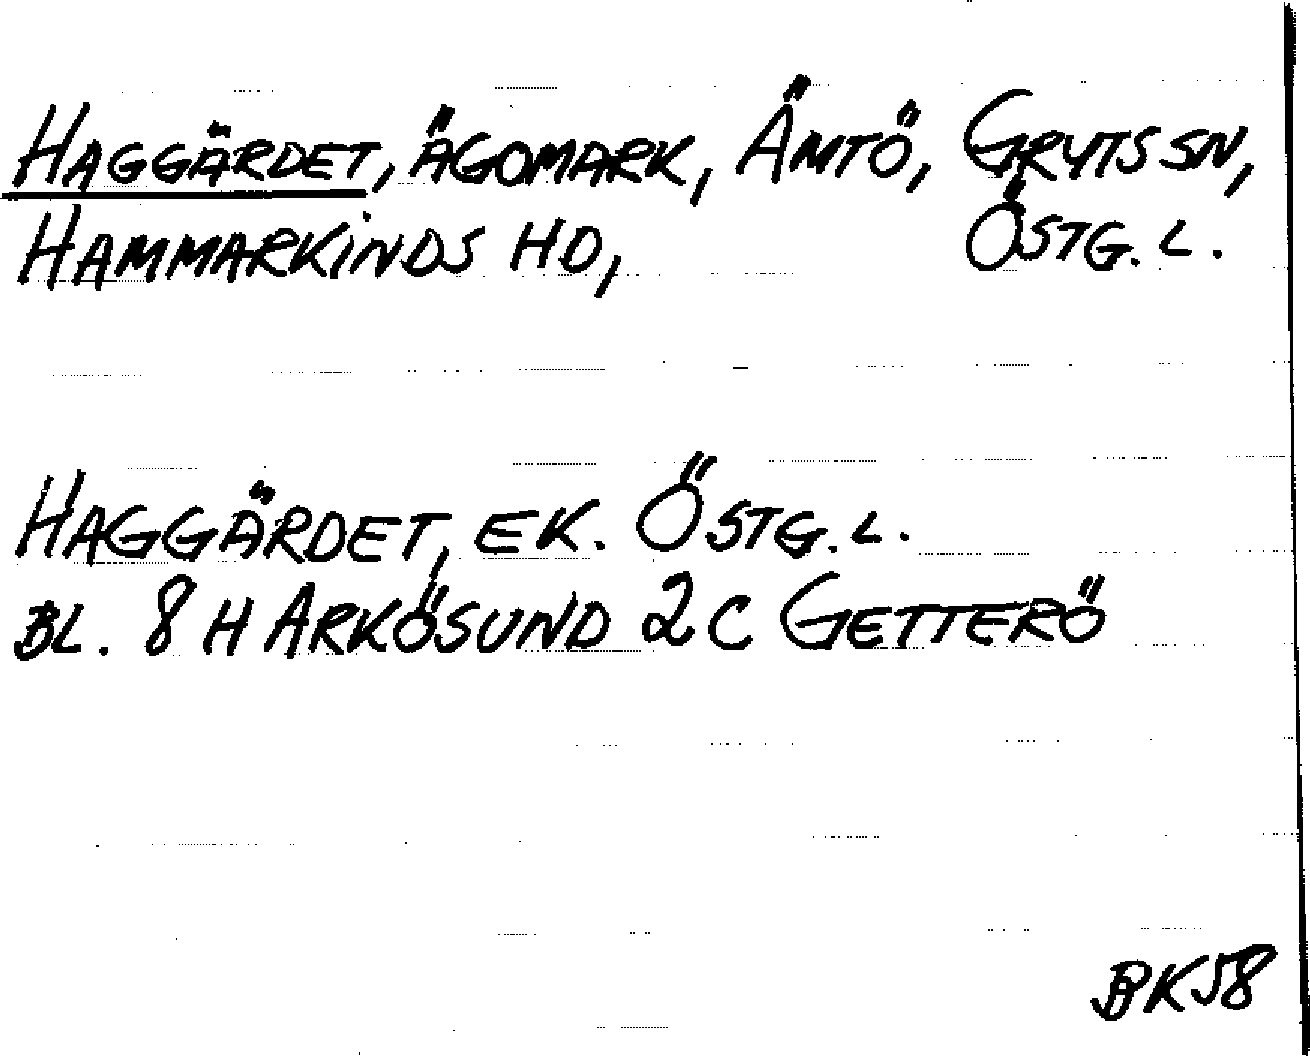 HAGGÄRDET, ÄGOMARK, ÄMTÖ, GRYTS SN,
HAMMARKINDS HD, ÖSTG. L.
HAGGÄRDET, EK. ÖSTG. L.
BL. 8 H ARKÖSUND 2 C GETTERÖ
BK58